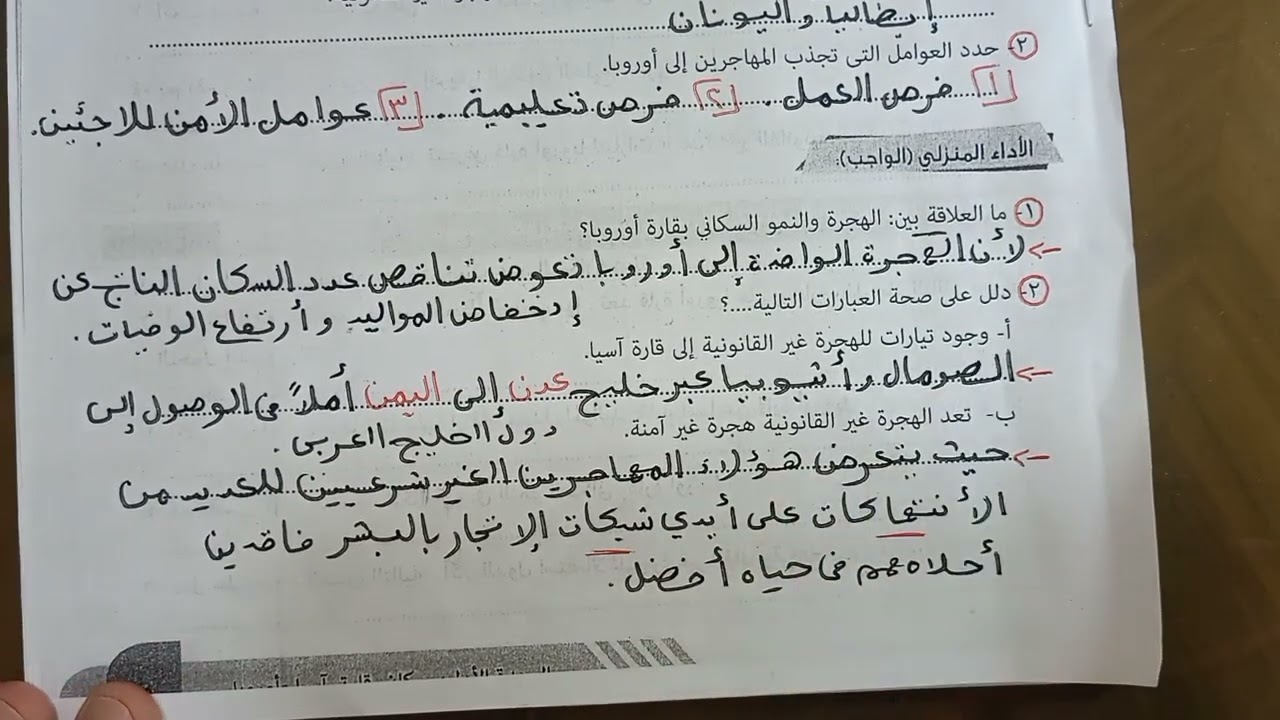 إيطاليا واليونان
٢- حدد العوامل التى تجذب المهاجرين إلى أوروبا.
١ فرص العمل. ٢ فرص تعليمية. ٣ عوامل الأمن للاجئين.
الأداء المنزلي (الواجب):
١- ما العلاقة بين: الهجرة والنمو السكاني بقارة أوروبا؟
لأن الهجرة الوافدة إلى أوروبا تعوض تناقص عدد السكان الناتج عن
إنخفاض المواليد وأرتفاع الوفيات.
٢- دلل على صحة العبارات التالية....؟
أ- وجود تيارات للهجرة غير القانونية إلى قارة آسيا.
الصومال وأثيوبيا عبر خليج عدن إلى اليمن أملاً فى الوصول إلى
دول الخليج العربى.
ب- تعد الهجرة غير القانونية هجرة غير آمنة.
حيث يتعرض هؤلاء المهاجرين الغير شرعيين للعديد من
الأنتهاكات على أيدي شبكات الإتجار بالبشر فاقدين
أحلامهم فى حياه أفضل.